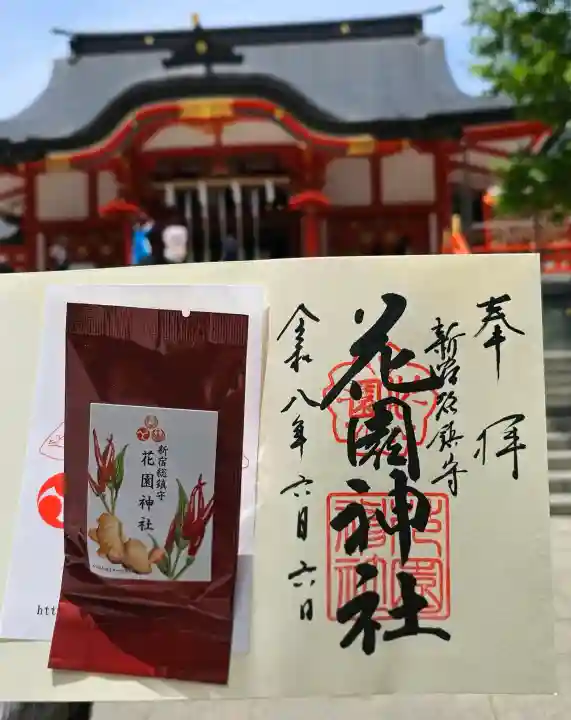 奉拝
新宿総鎮守
花園神社
令和八年六月六日
新宿総鎮守
花園神社
htt